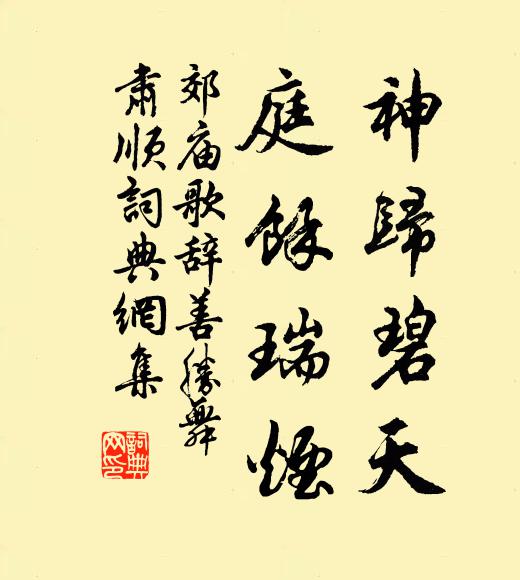 神歸碧天
庭餘瑞煙
郊庙歌辞善勝舞
肅順詞典網集
詞典
网印